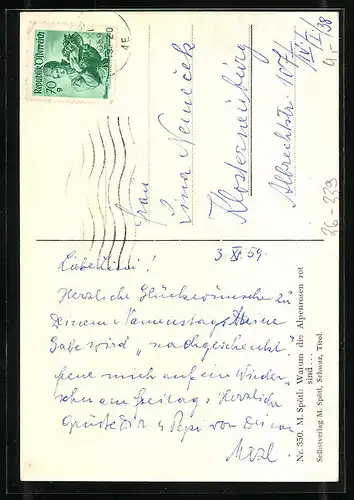 Republik Österreich
70 g
Frau
Lina Nemecek
Klosterneuburg
Albrechtstr. 107/
IV. /I /38
4,-
R6-333
3. XI. 59.
Liebe Lini!
Herzliche Glückwünsche zu
Deinem Namenstag. Meine
Gabe wird „nachgeschenkt".
freue mich auf ein Wieder-
sehn am Freitag. Herzliche
Grüsse Dir & Pepi von
Nr. 350. M. Spötl: Warum die Alpenrosen rot
sind...
Selbstverlag M. Spötl, Schwaz, Tirol.